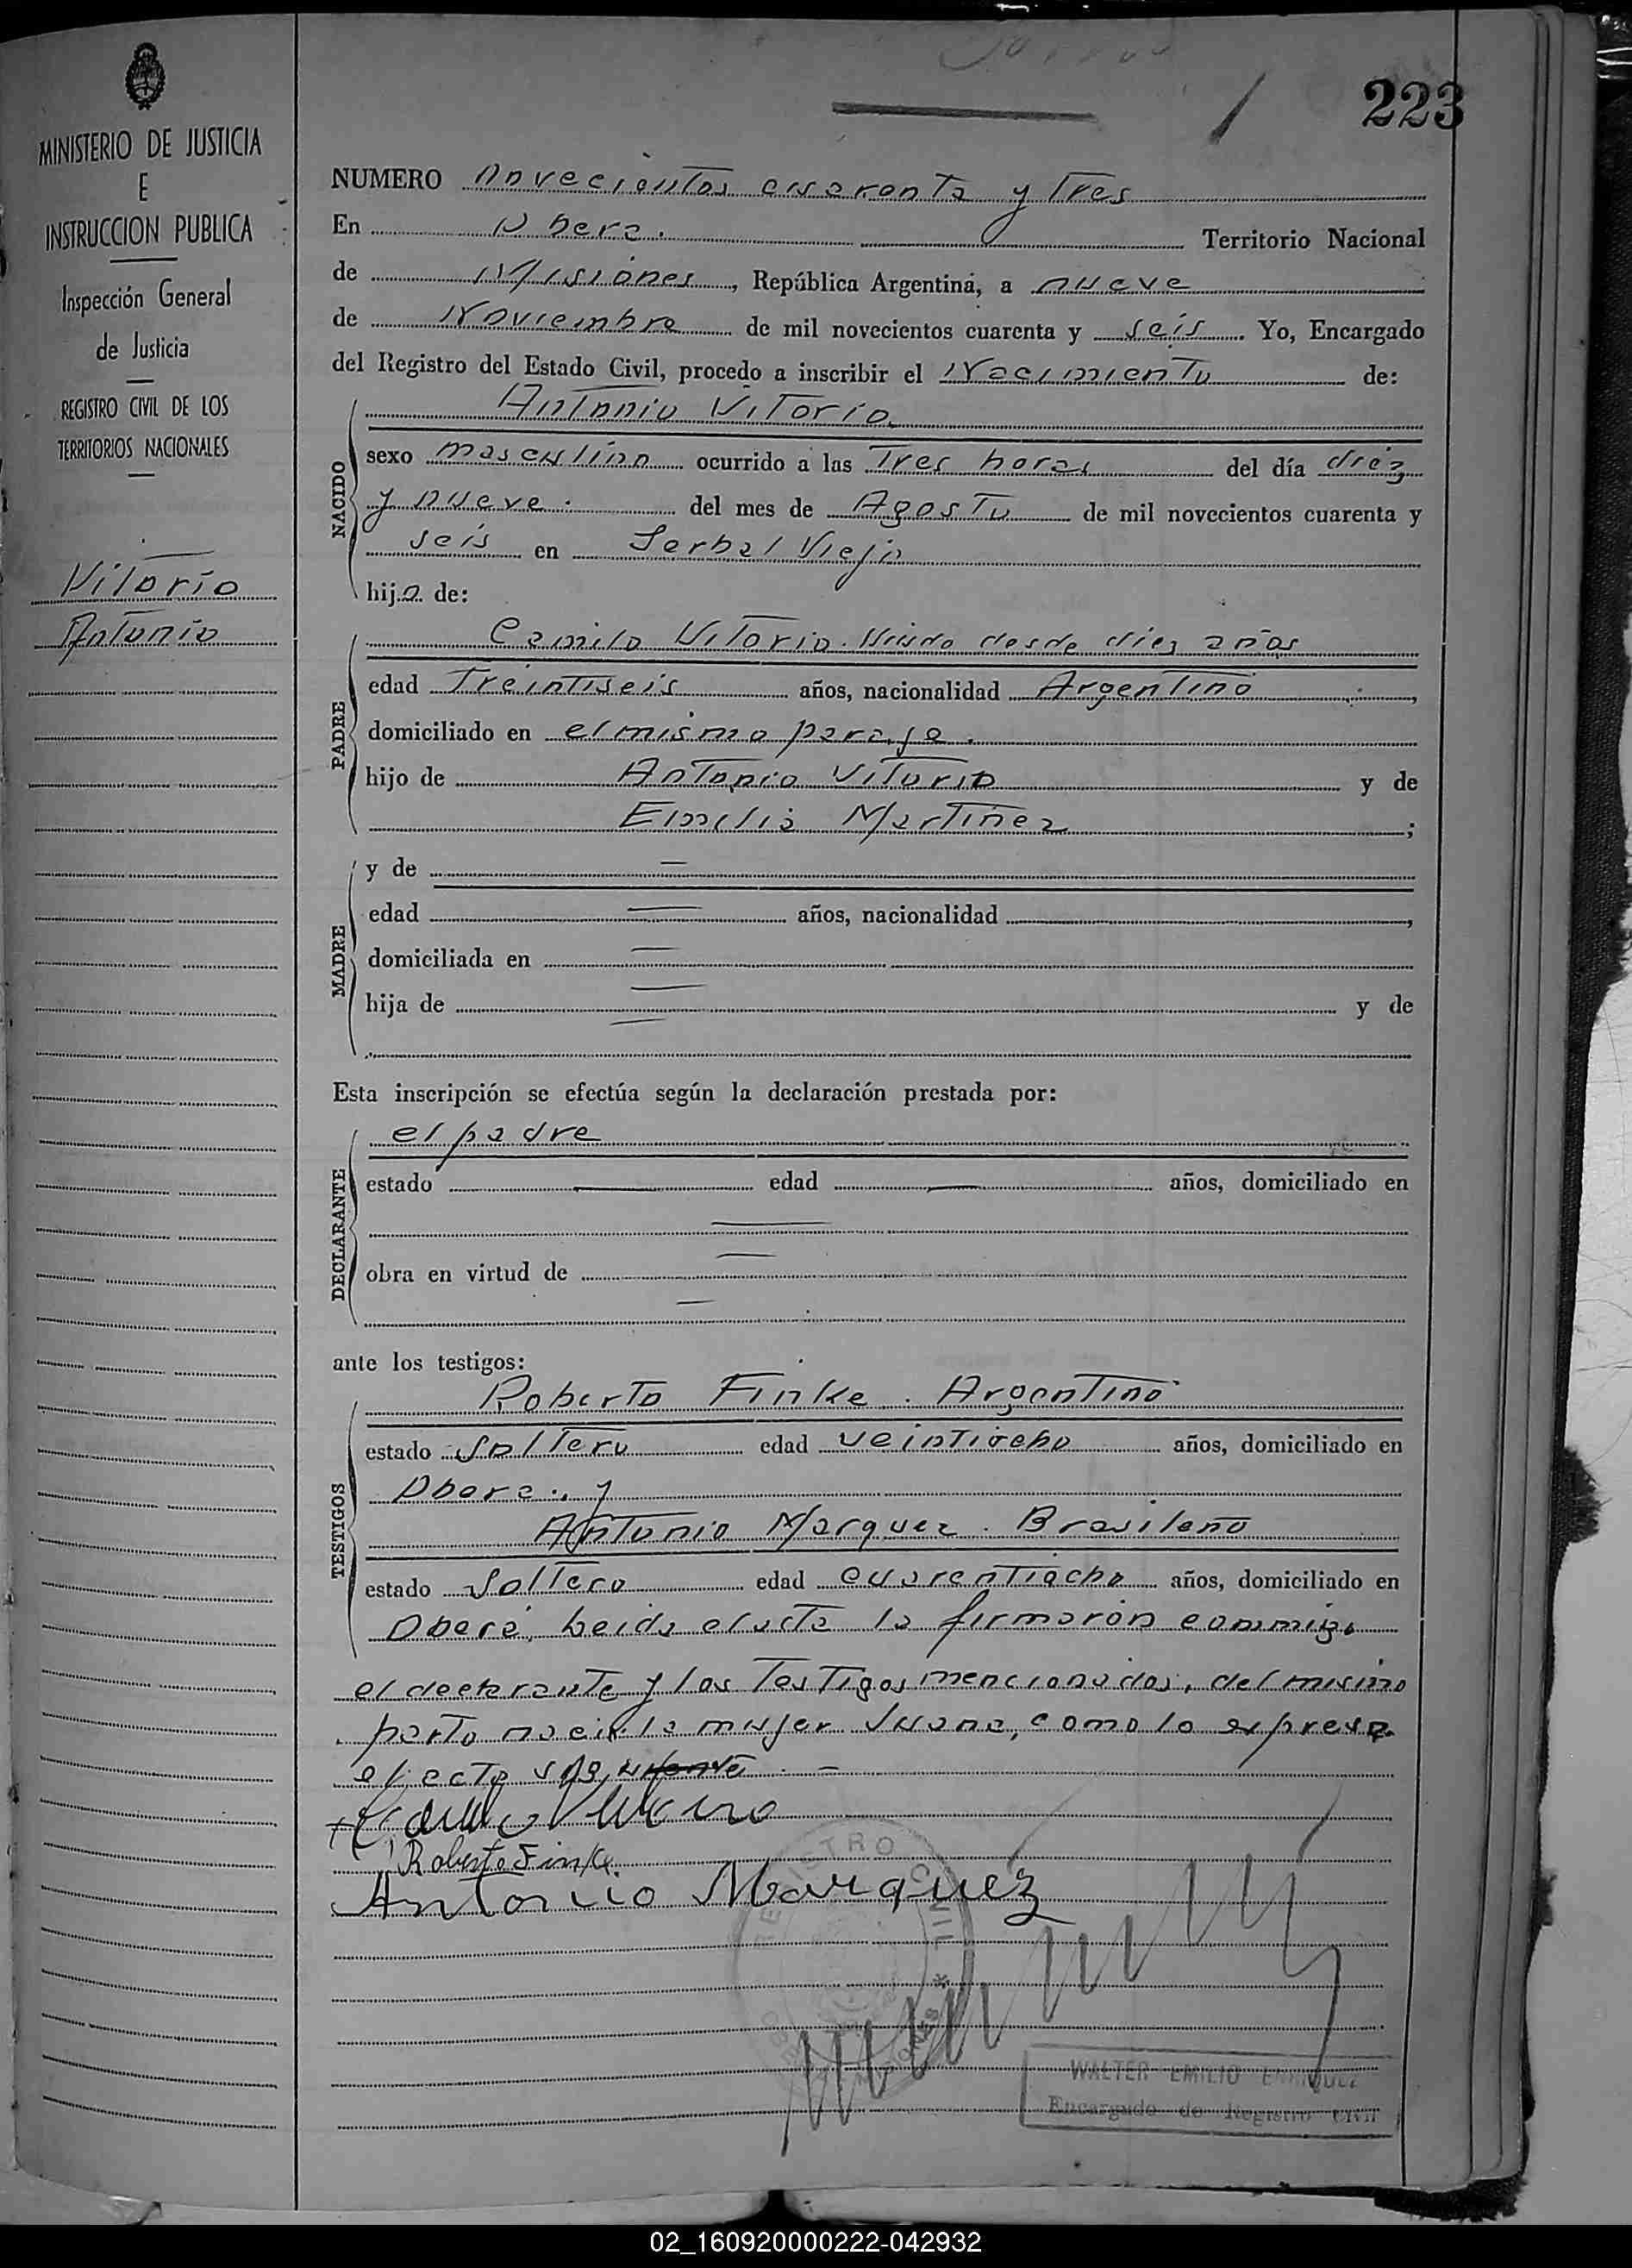 223
MINISTERIO DE JUSTICIA
E
INSTRUCCION PUBLICA
Inspección General
de Justicia
REGISTRO CIVIL DE LOS
TERRITORIOS NACIONALES
Vitorio
Antonio
NUMERO novecientos cuarenta y Tres
En Obera. Territorio Nacional
de Misiones, República Argentina, a nueve
de Noviembre de mil novecientos cuarenta y seis. Yo, Encargado
del Registro del Estado Civil, procedo a inscribir el Nacimiento de:
NACIDO
Antonio Vitorio.
sexo masculino ocurrido a las Tres horas del día diez
y nueve. del mes de Agosto de mil novecientos cuarenta y
seis en Serbal Viejo
hijo de:
PADRE
Camilo Vitorio. Viudo desde diez años
edad Treintiseis años, nacionalidad Argentino,
domiciliado en el mismo paraje.
hijo de Antonio Vitorio y de
Emilia Martinez;
MADRE
y de —
edad — años, nacionalidad ,
domiciliada en —
hija de — y de
—
Esta inscripción se efectúa según la declaración prestada por:
DECLARANTE
el padre
estado — edad — años, domiciliado en
—
obra en virtud de —
—
ante los testigos:
TESTIGOS
Roberto Finke. Argentino
estado Soltero edad veintiocho años, domiciliado en
Obera., y
Antonio Marquez. Brasileño
estado Soltero edad cuarentiocho años, domiciliado en
Oberá, Leida el acta la firmaron conmigo
el declarante y los Testigos mencionados, del mismo
parto nació la mujer Juana, como lo expresa
el acta
Camilo Vitorio
Roberto Finke.
Antonio Marquez
REGISTRO CIVIL
WALTER EMILIO ENRIQUEZ
Encargado de Registro Civil
02_160920000222-042932